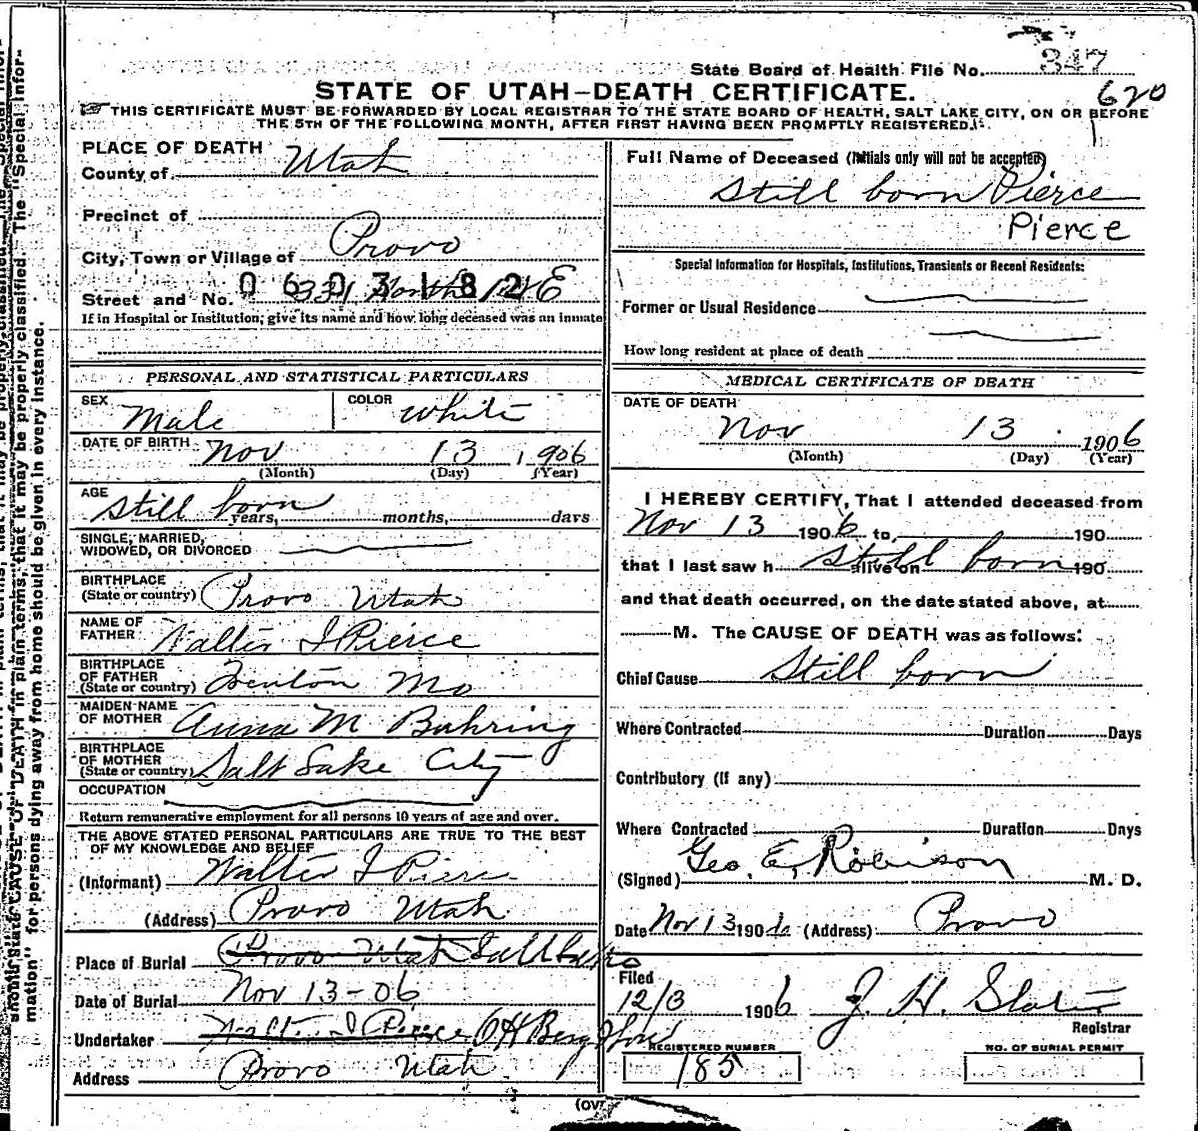 State Board of Health File No. 347
620
STATE OF UTAH—DEATH CERTIFICATE.
THIS CERTIFICATE MUST BE FORWARDED BY LOCAL REGISTRAR TO THE STATE BOARD OF HEALTH, SALT LAKE CITY, ON OR BEFORE
THE 5TH OF THE FOLLOWING MONTH, AFTER FIRST HAVING BEEN PROMPTLY REGISTERED.
PLACE OF DEATH
County of Utah
Precinct of
City, Town or Village of Provo
0603182
Street and No. 331 North E
If in Hospital or Institution, give its name and how long deceased was an inmate
PERSONAL AND STATISTICAL PARTICULARS
SEX Male COLOR White
DATE OF BIRTH Nov 13 1906
(Month) (Day) (Year)
AGE Still born
years, months, days
SINGLE, MARRIED,
WIDOWED, OR DIVORCED
BIRTHPLACE
(State or country) Provo Utah
NAME OF
FATHER Walter I Pierce
BIRTHPLACE
OF FATHER
(State or country) Trenton Mo
MAIDEN NAME
OF MOTHER Anna M Buhring
BIRTHPLACE
OF MOTHER
(State or country) Salt Lake City
OCCUPATION
Return remunerative employment for all persons 10 years of age and over.
THE ABOVE STATED PERSONAL PARTICULARS ARE TRUE TO THE BEST
OF MY KNOWLEDGE AND BELIEF
(Informant) Walter I Pierce
(Address) Provo Utah
Place of Burial Provo Utah
Date of Burial Nov 13-06
Undertaker Walter I Pierce O H Berg & Son
Address Provo Utah
Full Name of Deceased (Initials only will not be accepted)
Still born Pierce
Pierce
Special Information for Hospitals, Institutions, Transients or Recent Residents:
Former or Usual Residence
How long resident at place of death
MEDICAL CERTIFICATE OF DEATH
DATE OF DEATH
Nov 13 1906
(Month) (Day) (Year)
I HEREBY CERTIFY, That I attended deceased from
Nov 13 1906 to, 190
that I last saw h alive on Still born 190
and that death occurred, on the date stated above, at
M. The CAUSE OF DEATH was as follows:
Chief Cause Still born
Where Contracted Duration Days
Contributory (if any)
Where Contracted Duration Days
(Signed) Geo. E. Robinson M. D.
Date Nov 13 1906 (Address) Provo
Filed
12/3 1906 J. H. Slater
Registrar
REGISTERED NUMBER
185
NO. OF BURIAL PERMIT
(OV
should state CAUSE OF DEATH in plain terms, that it may be properly classified. The "Special Infor-
mation" for persons dying away from home should be given in every instance.